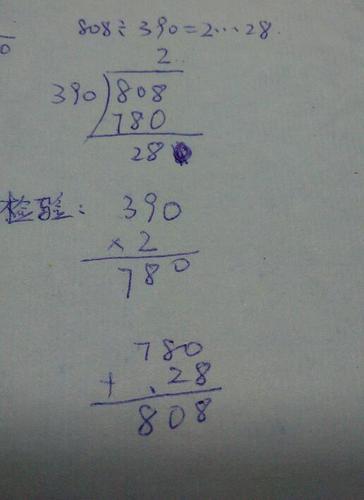 808÷390=2…28
2
390)808
780
28
检验:390
×2
780
780
+.28
808